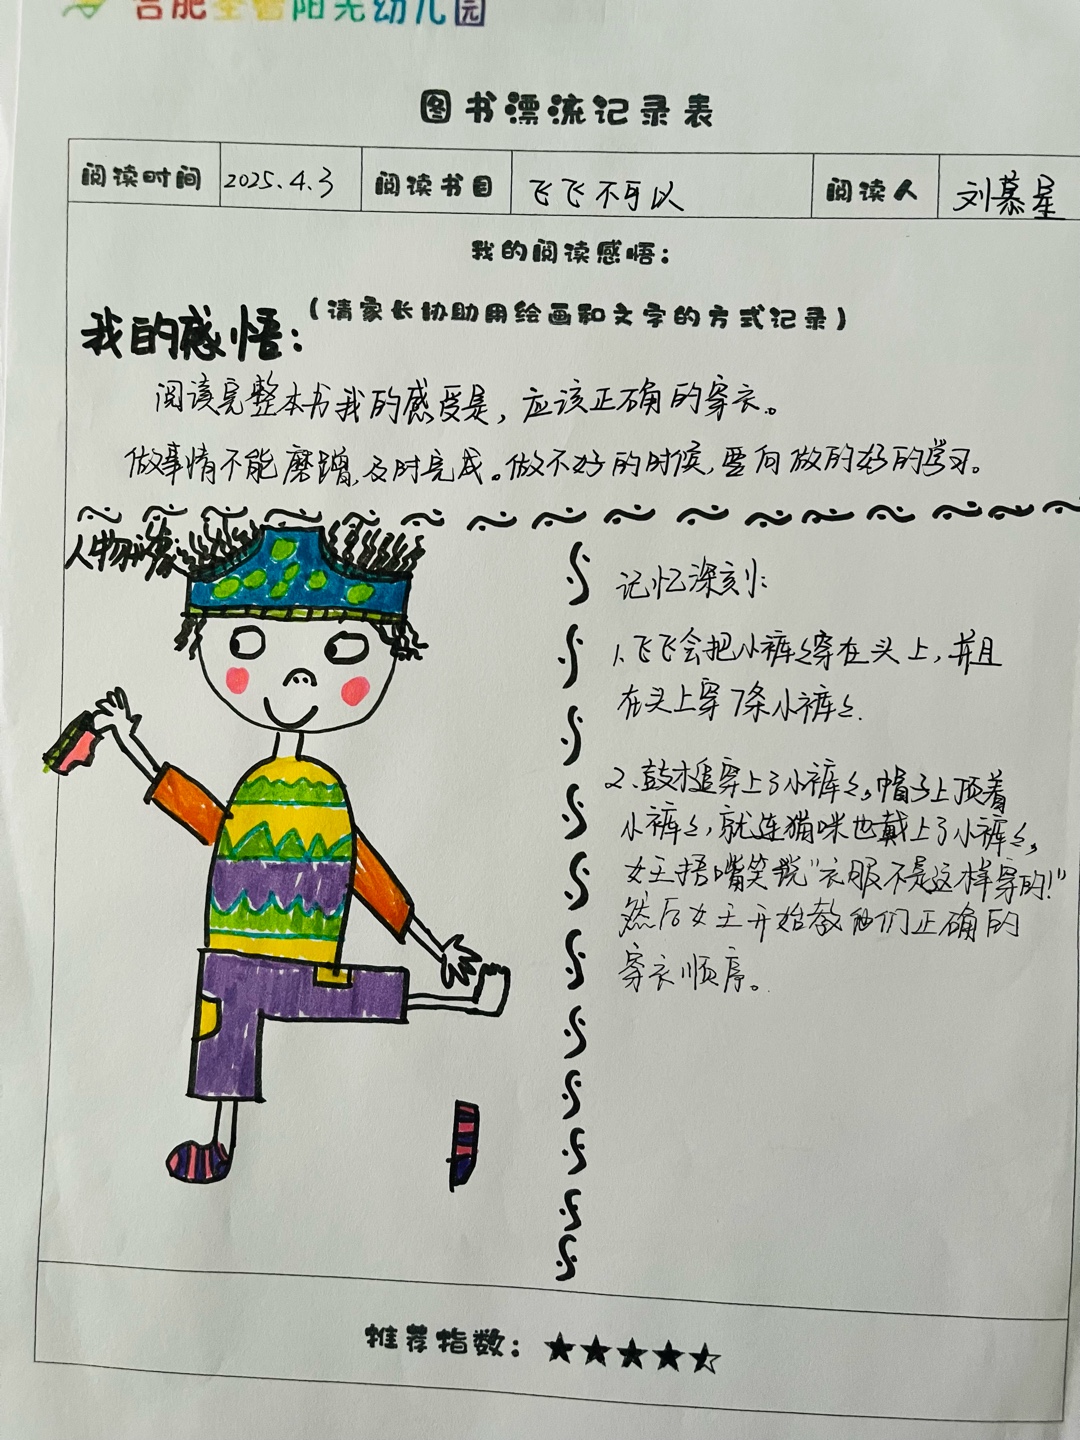 合肥圣普阳光幼儿园
图书漂流记录表
阅读时间 2025.4.3 阅读书目 飞飞不可以 阅读人 刘慕星
我的阅读感悟：
（请家长协助用绘画和文字的方式记录）
我的感悟：
阅读完整本书我的感受是，应该正确的穿衣。
做事情不能磨蹭，及时完成。做不好的时候，要向做的好的学习。
人物形象：
记忆深刻：
1.飞飞会把小裤衩穿在头上，并且
在头上穿7条小裤衩.
2.鼓槌穿上了小裤衩。帽子上顶着
小裤衩，就连猫咪也戴上了小裤衩。
女王捂嘴笑说“衣服不是这样穿的！”
然后女王开始教他们正确的
穿衣顺序。
推荐指数：★★★★⯪